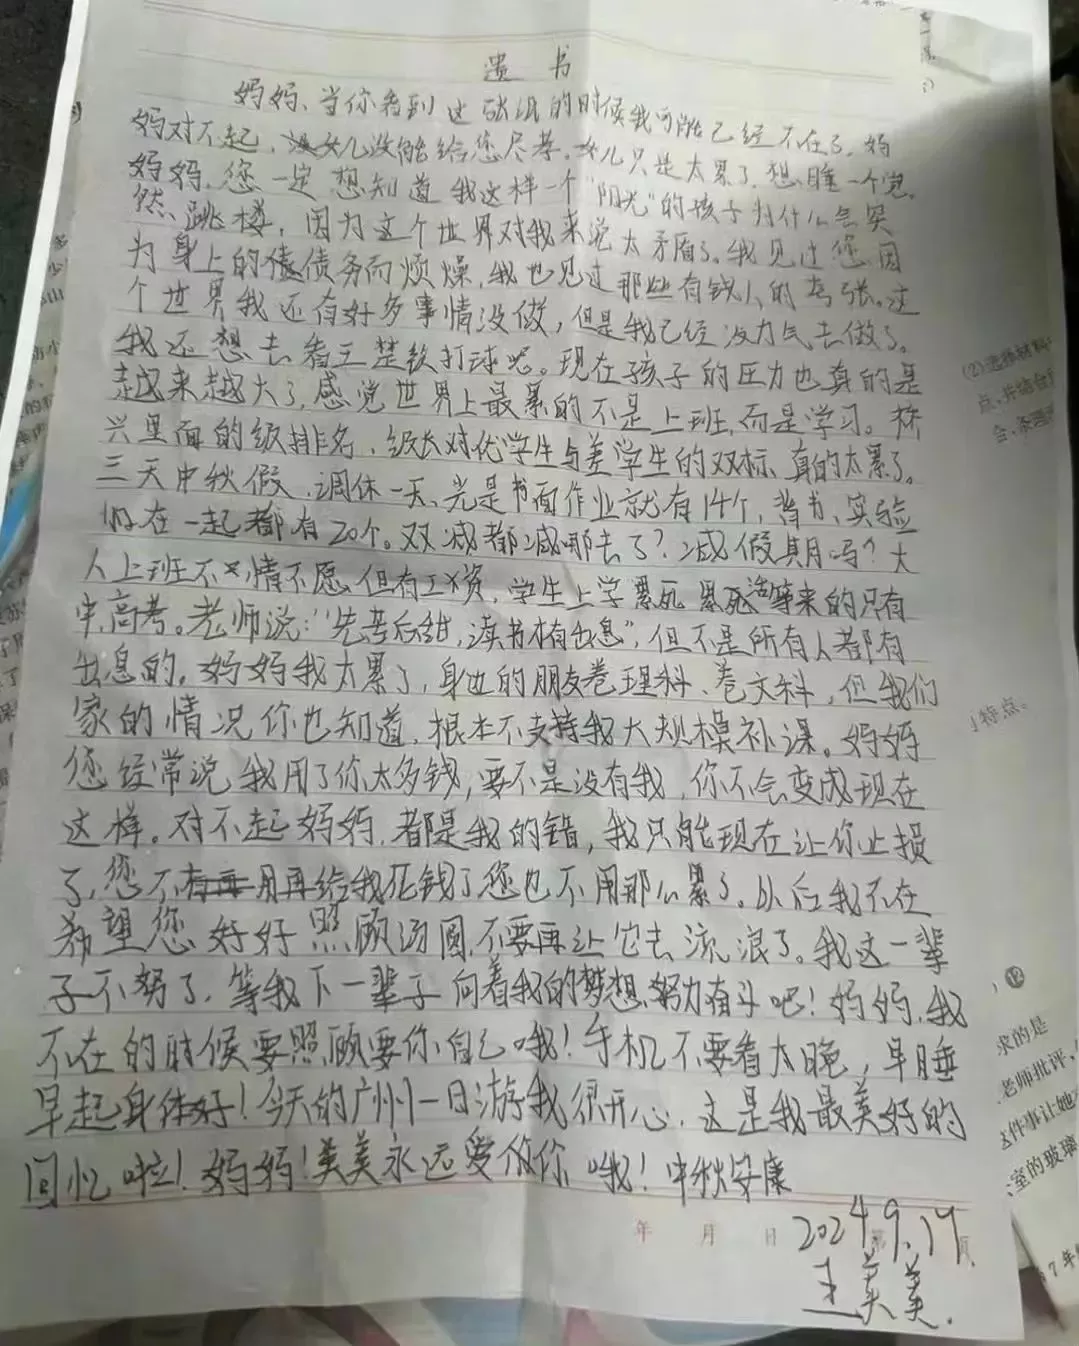 遗书
妈妈、当你看到这张纸的时候我可能已经不在了。妈
妈对不起，女儿没能给您尽孝。女儿只是太累了，想睡一个觉。
妈妈，您一定想知道我这样一个“阳光”的孩子为什么会突
然、跳楼，因为这个世界对我来说太矛盾了。我见过您因
为身上的债务而烦燥，我也见过那些有钱人的嚣张。这
个世界我还有好多事情没做，但是我已经没力气去做了。
我还想去看王楚钦打球呢。现在孩子的压力也真的是
越来越大了，感觉世界上最累的不是上班，而是学习。桥
兴里面的级排名、级长对优学生与差学生的双标、真的太累了。
三天中秋假，调休一天，光是书面作业就有14个，背书、实验
加在一起都有20个。双减都减哪去了？减假期吗？大
人上班不情不愿但有工资，学生上学累死累死等来的只有
中高考。老师说：“先苦后甜，读书才有出息”，但不是所有人都有
出息的。妈妈我太累了，身边的朋友卷理科、卷文科，但我们
家的情况你也知道，根本不支持我大规模补课。妈妈
您经常说我用了你太多钱，要不是没有我，你不会变成现在
这样。对不起妈妈，都是我的错，我只能现在让你止损
了，您不用再给我花钱了您也不用那么累了。以后我不在
希望您好好照顾汤圆，不要再让它去流浪了。我这一辈
子不努了，等我下一辈子向着我的梦想努力奋斗吧！妈妈，我
不在的时候要照顾要你自己哦！手机不要看太晚，早睡
早起身体好！今天的广州一日游我很开心，这是我最美好的
回忆啦！妈妈！美美永远爱你哦！中秋安康
年 月 日
2024.9.17
王美美.
(2)选择材料
点，并结合
特点。
求的是
老师批评，
这件事让她
室的玻璃